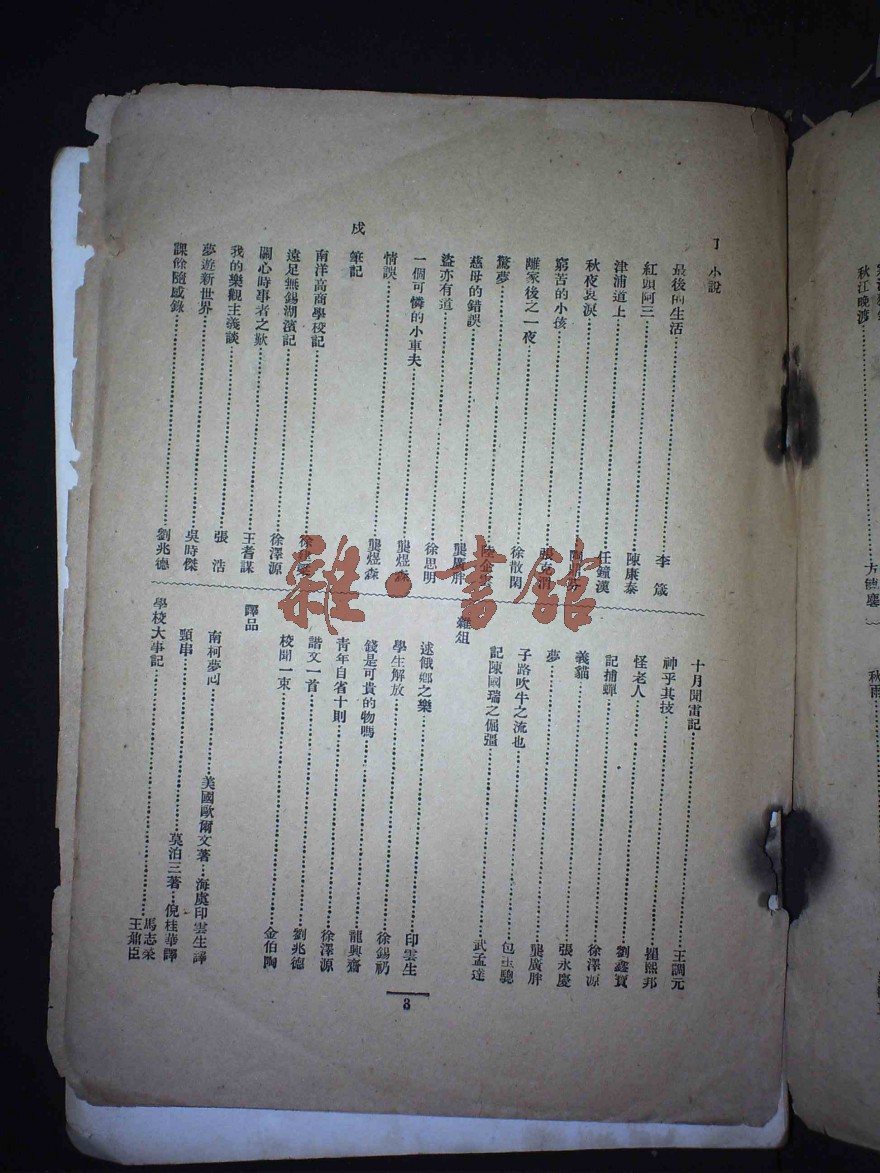 丁 小說
最後的生活…………李箴
紅頭阿三…………陳康泰
津浦道上…………任鐘漢
秋夜哀淚…………
窮苦的小孩…………
離家後之一夜…………徐散閑
驚夢…………
慈母的錯誤…………龔廣胖
盜亦有道…………徐思明
一個可憐的小車夫…………龔煜森
情誤…………龔煜森
戍 筆記
南洋高商學校記…………
遠足無錫湖濱記…………徐澤源
關心時事者之歎…………王耆謀
我的樂觀主義談…………張浩
夢遊新世界…………吳時傑
課餘隨感錄…………劉兆德
十月聞雷記…………王調元
神乎其技…………瞿熙邦
怪老人…………劉鑫寶
記捕蟬…………徐澤源
義貓…………張永慶
夢…………龔廣胖
子路吹牛之流也…………包玉驄
記陳國瑞之倔彊…………武孟達
雜俎
述俄鄉之樂…………印雲生
學生解放…………徐錫礽
錢是可貴的物嗎…………龍興齋
青年自省十則…………徐澤源
諧文一首…………劉兆德
校聞一束…………金伯陶
譯品
南柯夢回………美國歐爾文著…海虞印雲生譯
頸串…………莫泊三著…倪桂華譯
學校大事記…………馬志柔 王鼐臣
3
雜·書館
秋江晚渡
秋雨